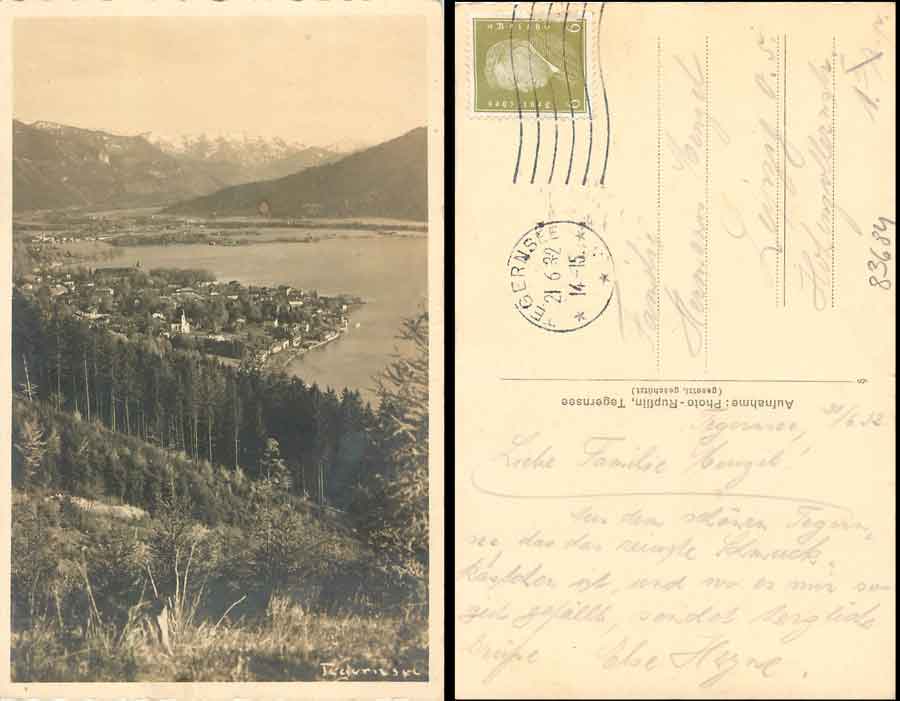 Tegernsee
6 6
Deutsches Reich
TEGERNSEE
21.6.32
14-15
Familie
Hermann Henzel
Hohenzollernstr.
83684
Aufnahme: Photo-Rupflin, Tegernsee
(gesetzl. geschützt)
Tegernsee, /6.32
Liebe Familie Henzel!
Aus dem schönen Tegern,
see, das das reinste Schmuck,
kästchen ist, und wo es mir so
gut gefällt, sendet herzliche
Grüße Else Heyne